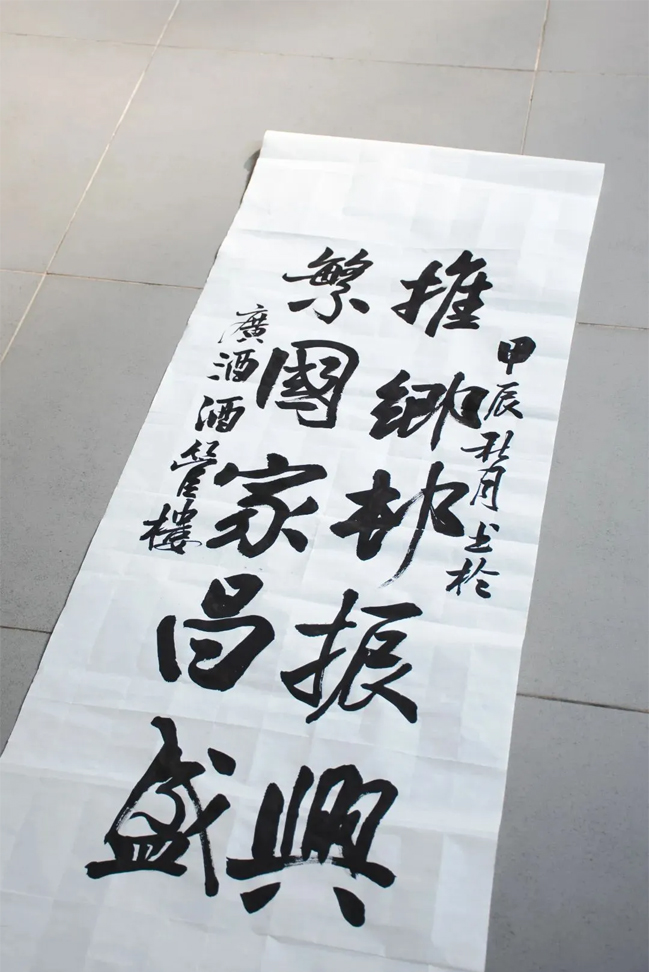 甲辰秋月书於
推乡邨振興
繁國家昌盛
廣酒酒管樓